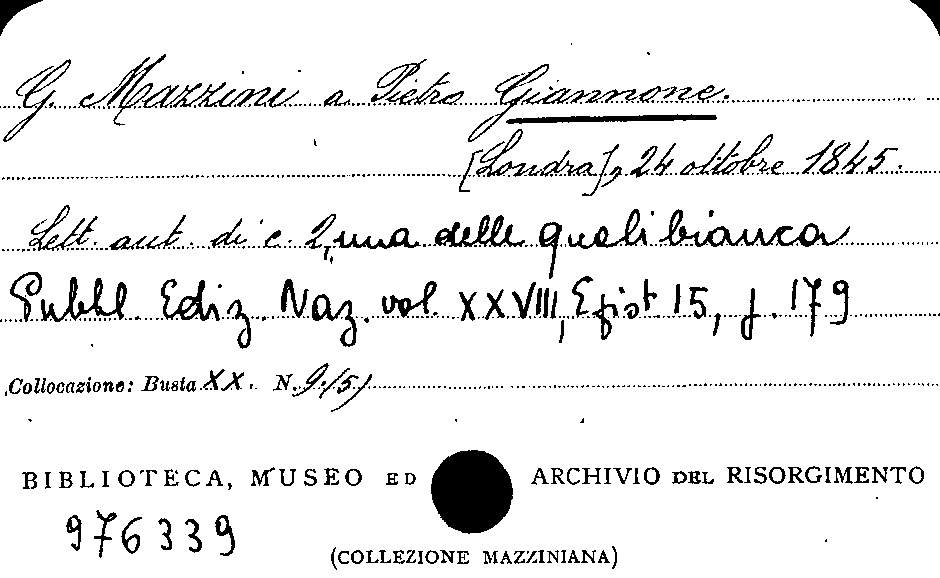 G. Mazzini a Pietro Giannone.
[Londra], 24 ottobre 1845.
Lett. aut. di c. 2, una delle quali bianca
Pubbl. Ediz. Naz. vol. XXVIII, Epist 15, p. 179
Collocazione: Busta XX. N. 9/(5)
BIBLIOTECA, MUSEO ED ARCHIVIO DEL RISORGIMENTO
976339
(COLLEZIONE MAZZINIANA)